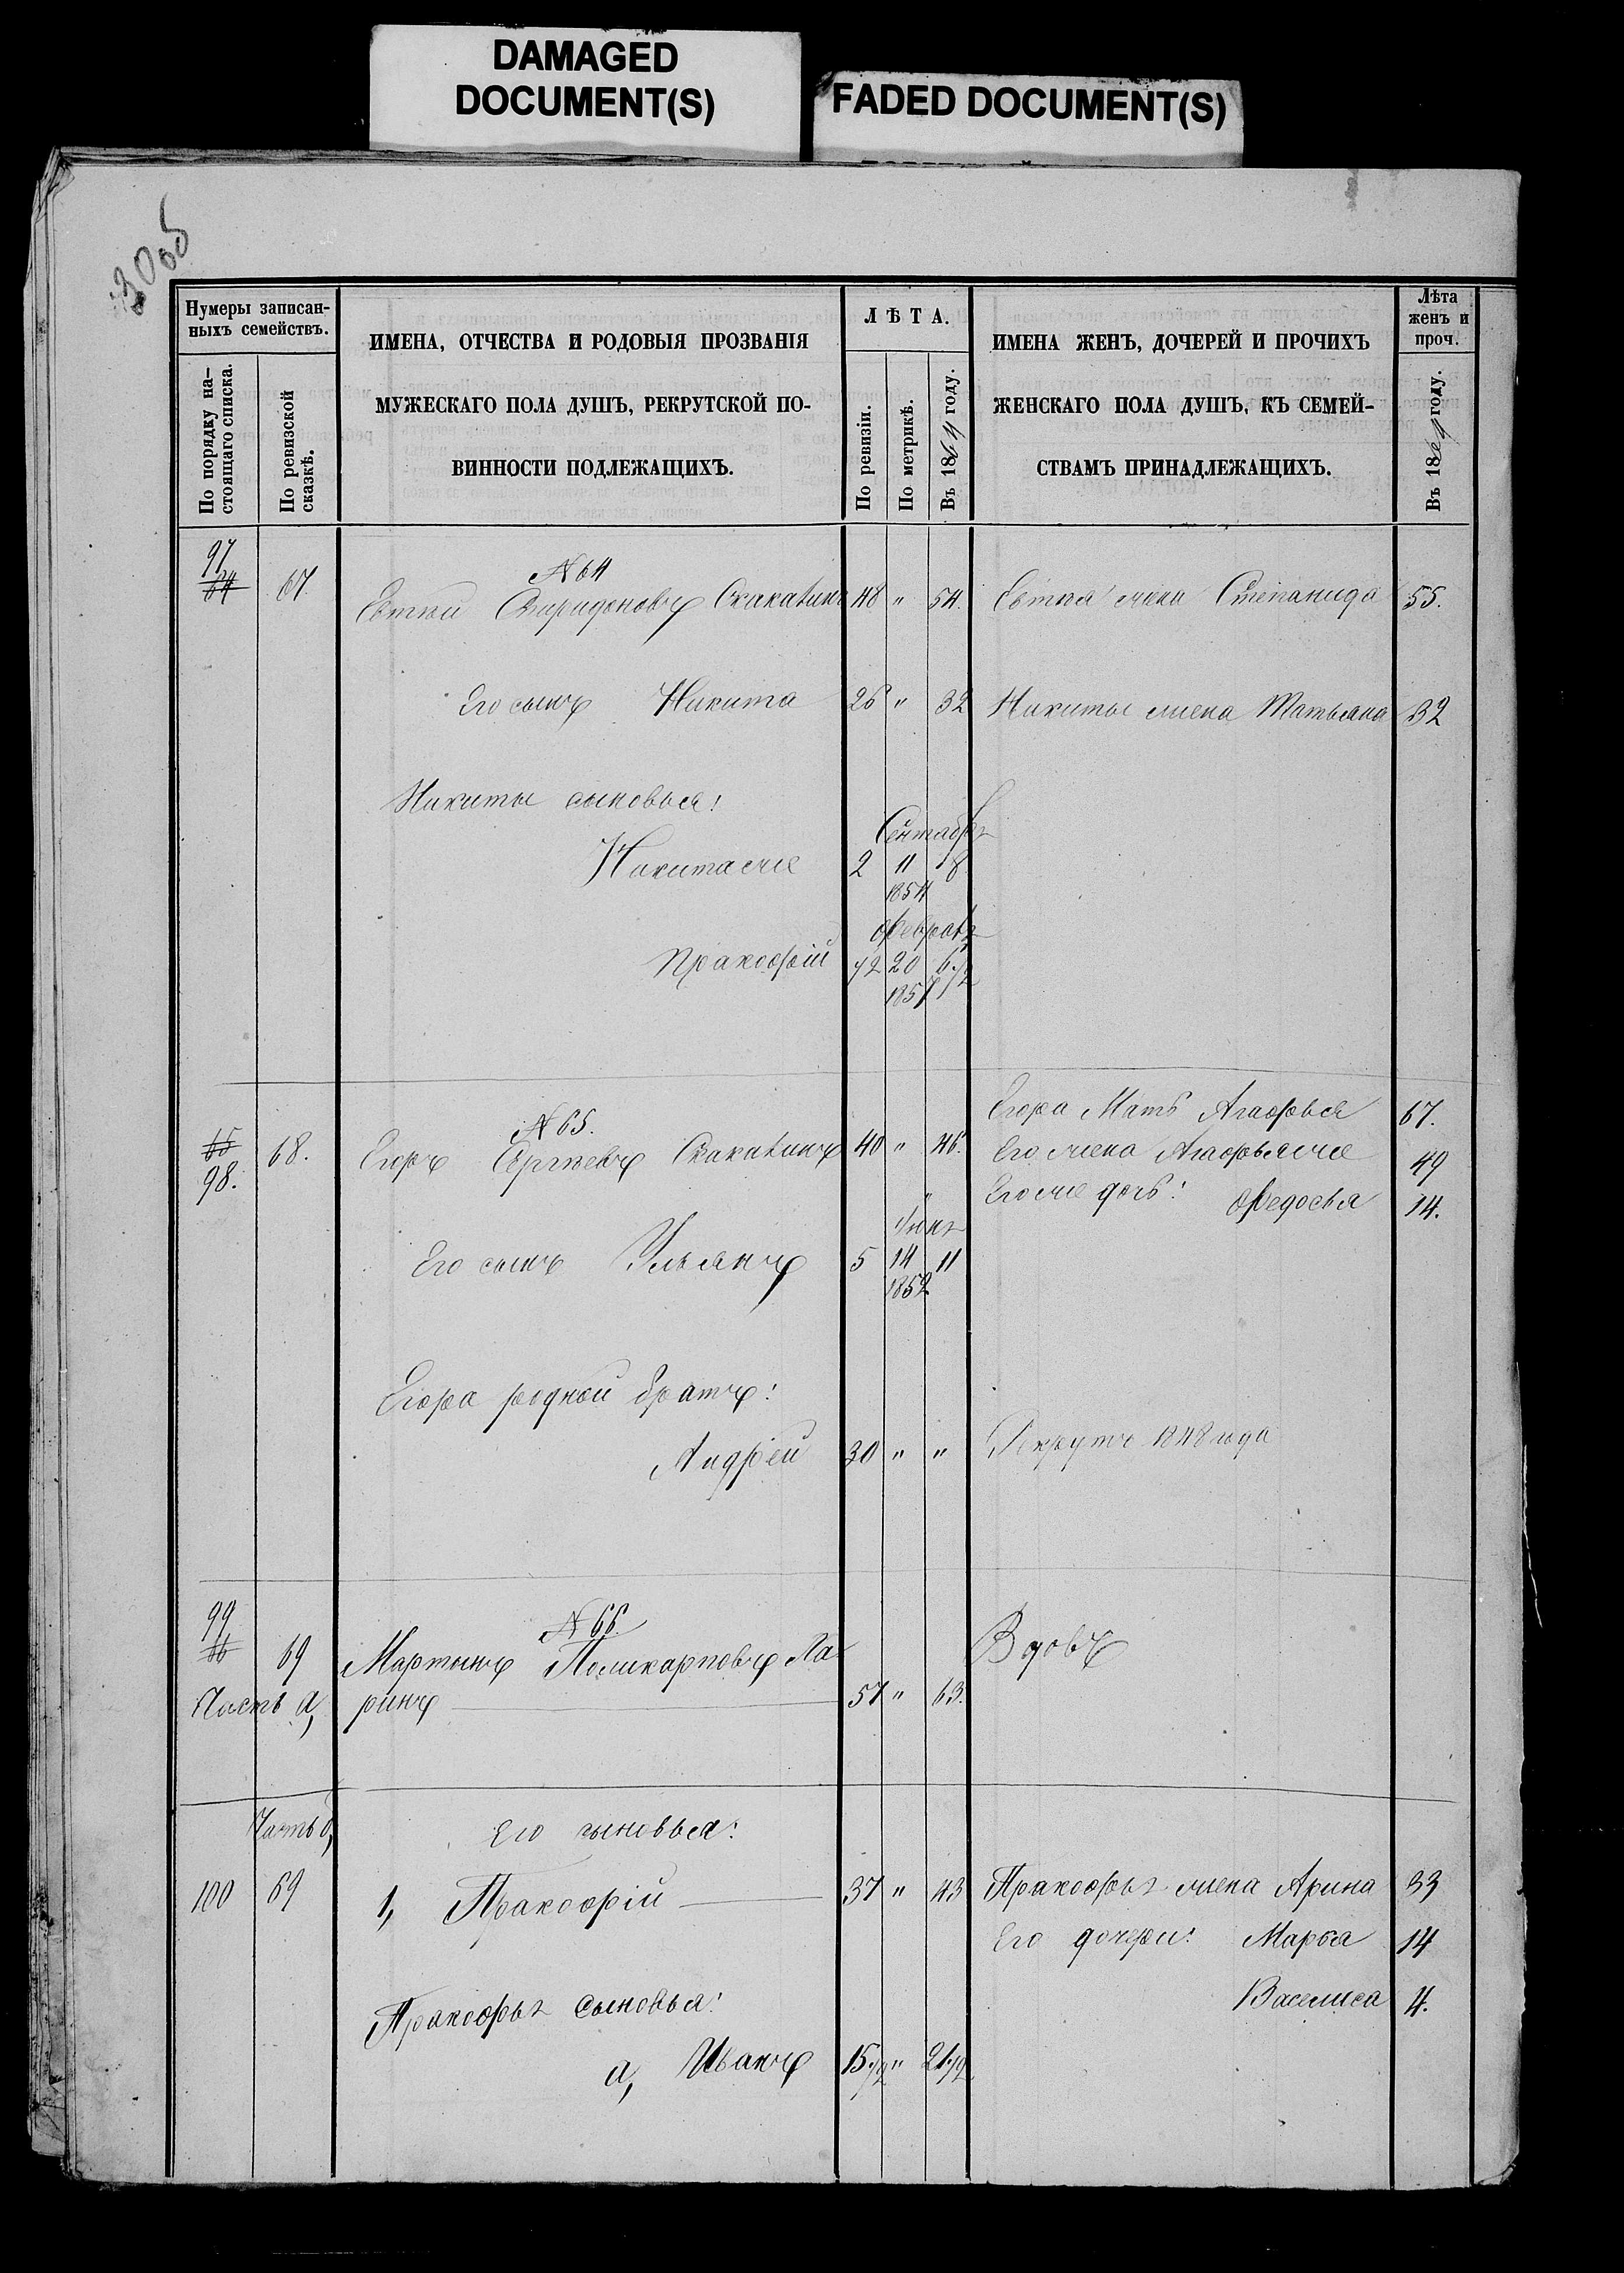 DAMAGED
DOCUMENT(S)
FADED DOCUMENT(S)
30об
Нумеры записан-
ныхъ семействъ.
По порядку на-
стоящаго списка.
По ревизской
сказкѣ.
ИМЕНА, ОТЧЕСТВА И РОДОВЫЯ ПРОЗВАНІЯ
МУЖЕСКАГО ПОЛА ДУШЪ, РЕКРУТСКОЙ ПО-
ВИННОСТИ ПОДЛЕЖАЩИХЪ.
ЛѢТА.
По ревизіи.
По метрикѣ.
Въ 1864 году.
ИМЕНА ЖЕНЪ, ДОЧЕРЕЙ И ПРОЧИХЪ
ЖЕНСКАГО ПОЛА ДУШЪ, КЪ СЕМЕЙ-
СТВАМЪ ПРИНАДЛЕЖАЩИХЪ.
Лѣта
женъ и
проч.
Въ 1864 году.
97
64 67 №64
Евтѣй Спиридоновъ Скакалинъ 48 " 54. Евтея жена Степанида 55.
Его сынъ Никита 26 " 32 Никиты жена Татьяна 32
Никиты сыновья:
Сентябр.
Никита же 2 11 8
1854
Феврал.
Пракофій 1/2 20 6 1/2
1857
№65.
Егора Мать Агафья 67.
65 68. Егоръ Сергѣевъ Скакалинъ 40 " 46. Его жена Агафья же 49
98.
Его же дочь: Федосья 14.
Іюн.
Его сынъ Ульянъ 5 14 11
1852
Егора родной братъ:
Андрей 30 " " Рекрутъ 1848 года
99 №66.
66 69 Мартынъ Поликарповъ Ла- Вдовъ
Часть а, ринъ 57 " 63.
Часть б, Его сыновья:
100 69 1, Пракофій 37 " 43 Пракофья жена Арина 33
Его дочери: Марфа 14
Василиса 4.
Пракофья сыновья:
а, Иванъ 15 1/2 " 21 1/2